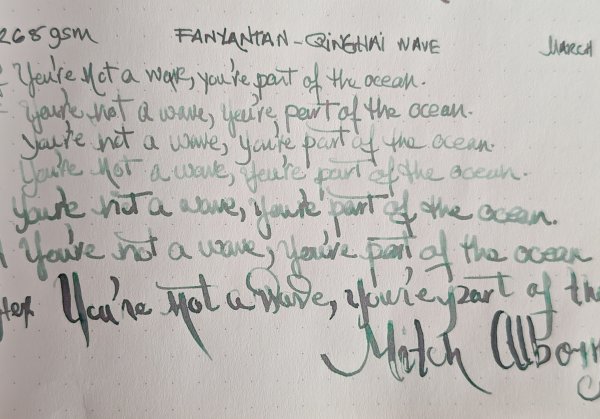 268gsm FANYANTAN - QINGHAI WAVE MARCH
You're not a wave, you're part of the ocean.
You're not a wave, you're part of the ocean.
You're not a wave, you're part of the ocean.
You're not a wave, you're part of the ocean.
You're not a wave, you're part of the ocean.
You're not a wave, you're part of the ocean
You're not a wave, you're part of the
Mitch Albom